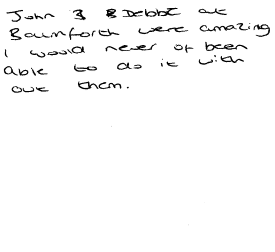 John & Debbie at
Bamforth were amazing
I would never of been
able to do it with
out them.